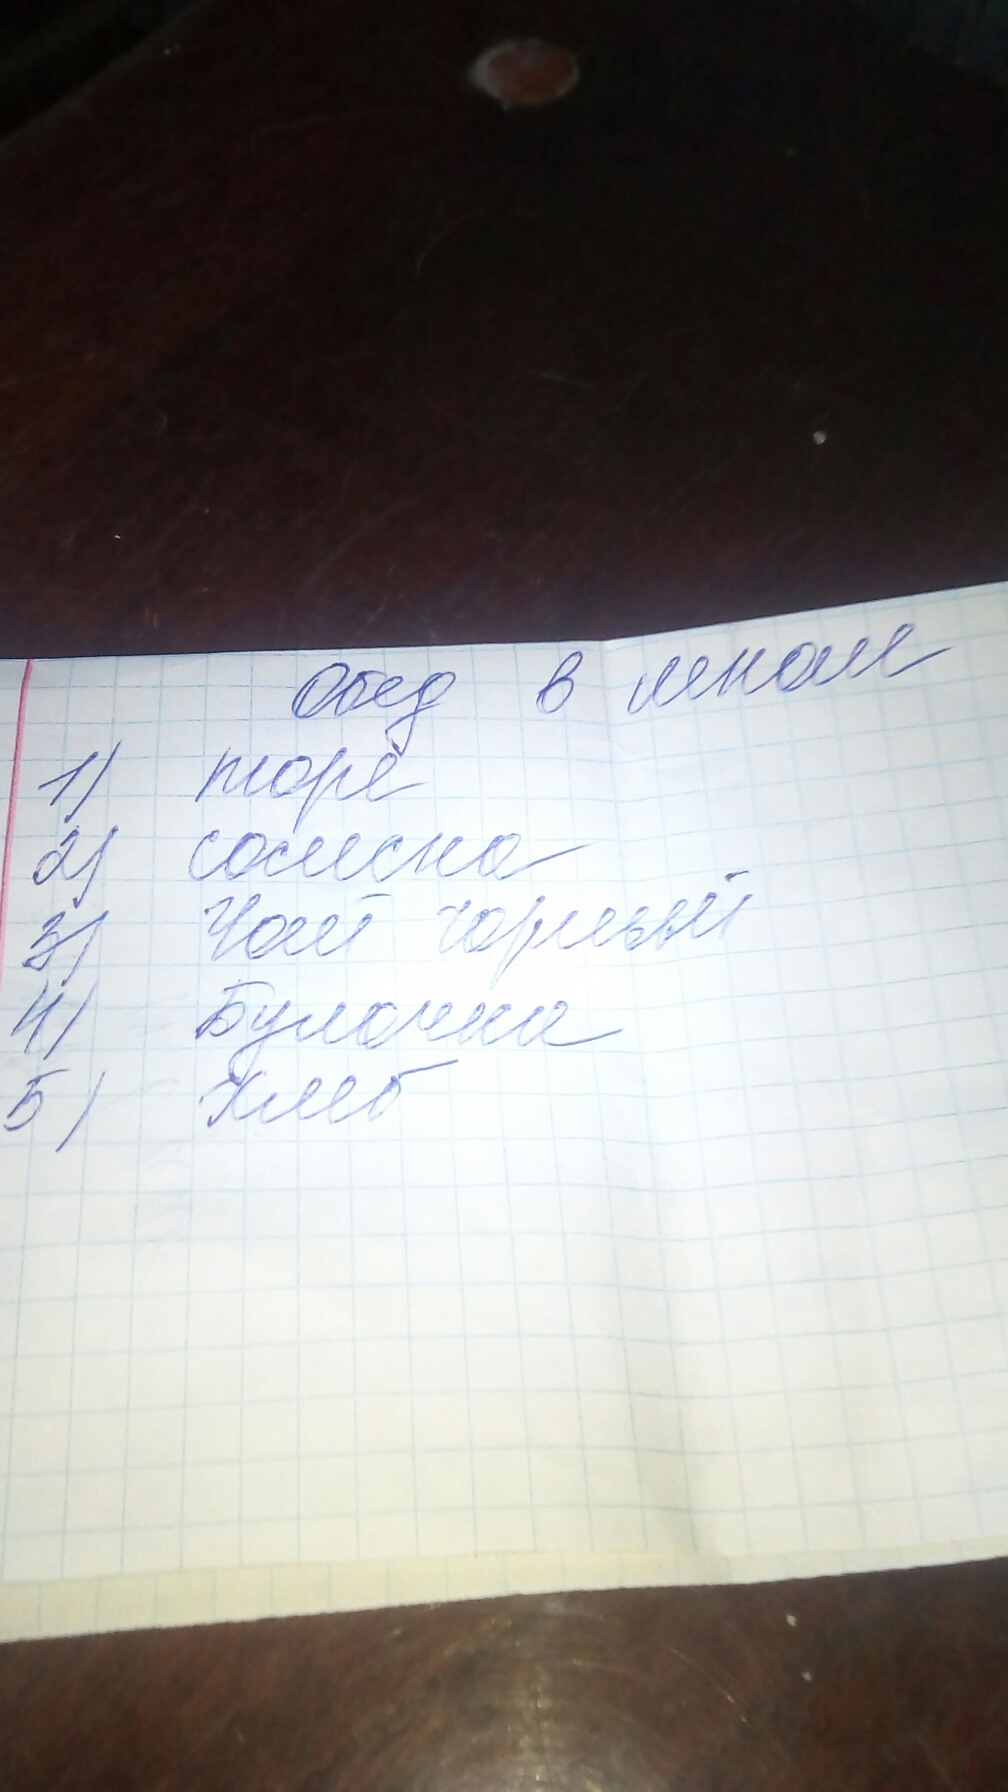 Обед в школе
1) пюре
2) сосиска
3) Чай чорный
4) Булочка
5) хлеб